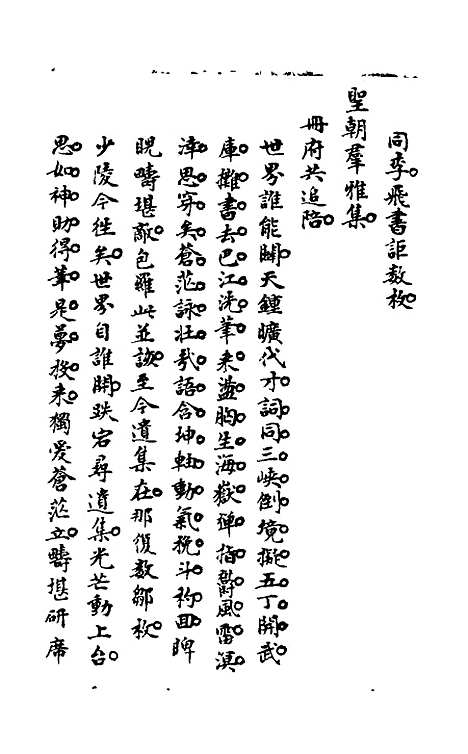 同李飛書詎數枚
聖朝羣雅集
冊府共追陪
世界誰能闢天鍾曠代才詞同三峽倒境擬五丁開武
庫攤書去巴江洗筆來盪胸生海嶽彈指鬱風雷溟
涬思穿矣蒼茫詠壯哉語含坤軸動氣挽斗杓回睥
睨疇堪敵包羅此並該至今遺集在那復數鄒枚
少陵今往矣世界自誰開跌宕尋遺集光芒動上台
思如神助得筆是夢授來獨爱蒼茫立疇堪研席